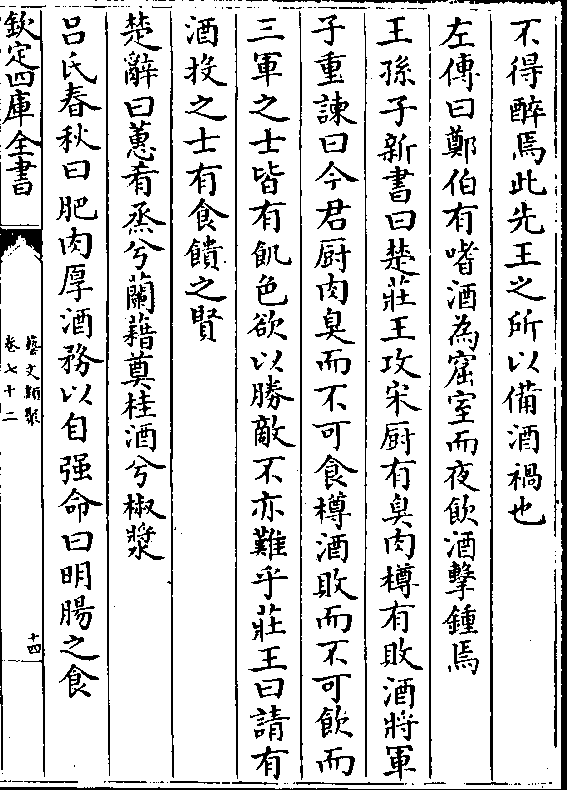 不得醉焉此先王之所以備酒禍也
左傳曰鄭伯有嗜酒為窟室而夜飲酒擊鍾焉
王孫子新書曰楚莊王攻宋厨有臭肉樽有敗酒將軍
子重諫曰今君厨肉臭而不可食樽酒敗而不可飲而
三軍之士皆有飢色欲以勝敵不亦難乎莊王曰請有
酒投之士有食饋之賢
楚辭曰蕙肴烝兮蘭藉奠桂酒兮椒漿
吕氏春秋曰肥肉厚酒務以自强命曰明腸之食
欽定四庫全書
藝文類聚
卷七十二
十四